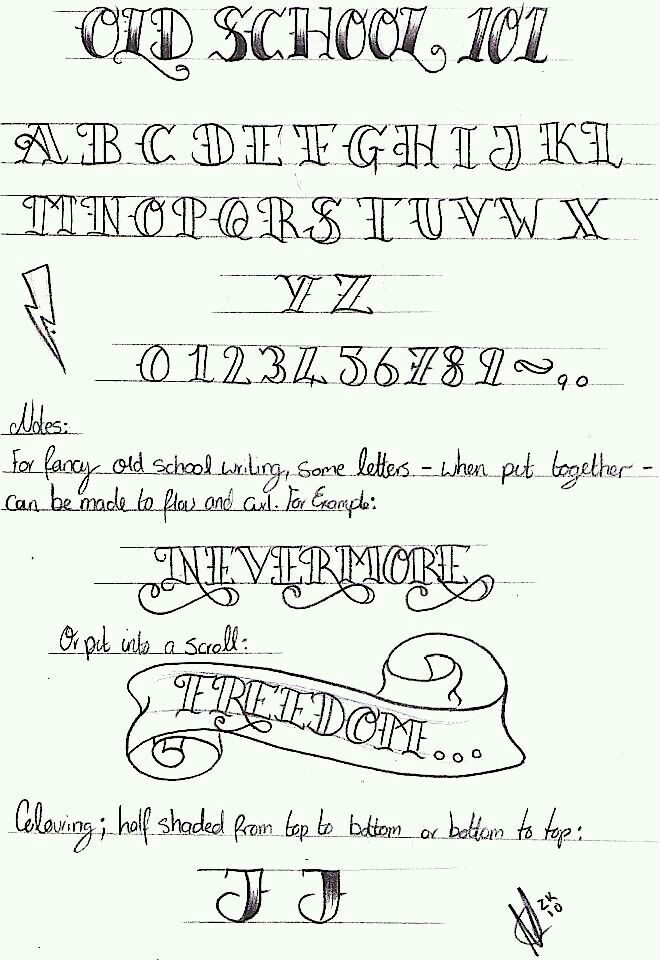 OLD SCHOOL 101
A B C D E F G H I J K L
M N O P Q R S T U V W X
Y Z
0 1 2 3 4 5 6 7 8 9 ~ , .
Notes:
For fancy old school writing, some letters - when put together -
can be made to flow and curl. For Example:
NEVERMORE
Or put into a scroll:
FREEDOM...
Colouring; half shaded from top to bottom or bottom to top:
J J
ZK
10